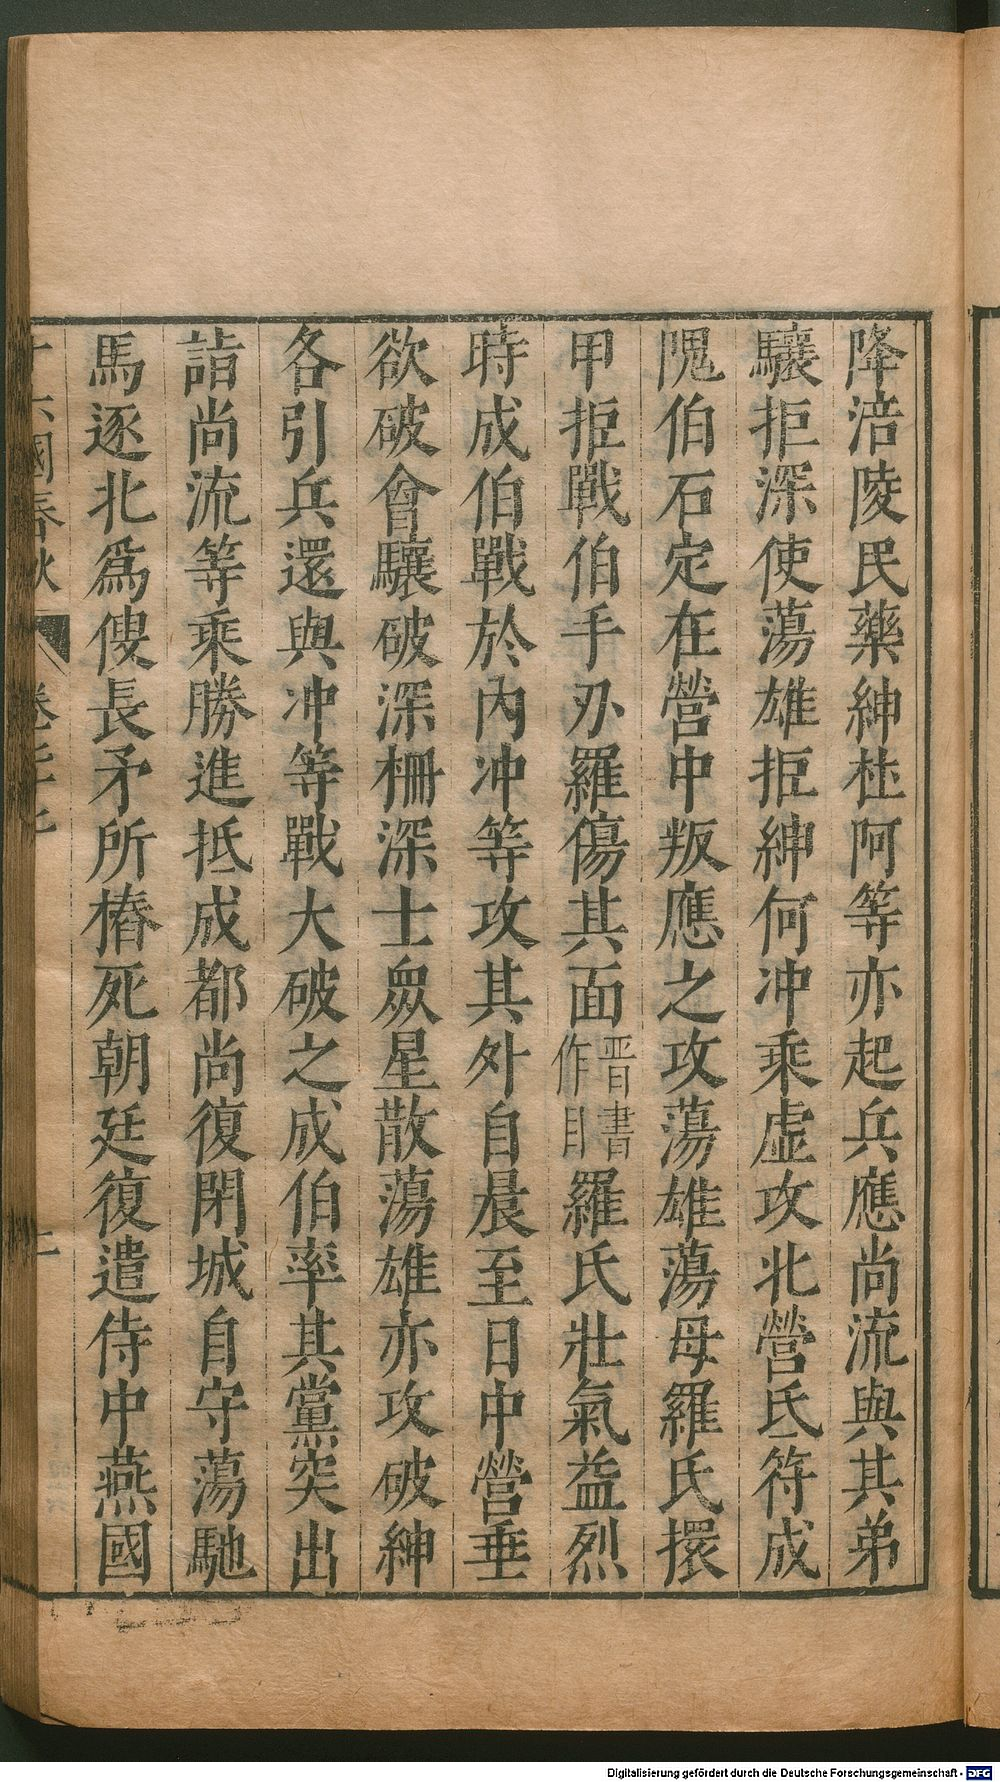 降涪陵民藥紳杜阿等亦起兵應尚流與其弟
驤拒深使蕩雄拒紳何冲乘虛攻北營氐符成
隗伯石定在營中叛應之攻蕩雄蕩母羅氏擐
甲拒戰伯手刃羅傷其面晋書作目羅氏壯氣益烈
時成伯戰於內冲等攻其外自晨至日中營垂
欲破會驤破深柵深士眾星散蕩雄亦攻破紳
各引兵還與冲等戰大破之成伯率其黨突出
詣尚流等乘勝進抵成都尚復閉城自守蕩馳
馬逐北為傁長矛所樁死朝廷復遣侍中燕國
十六國春秋 卷
Digitalisierung gefördert durch die Deutsche Forschungsgemeinschaft - DFG